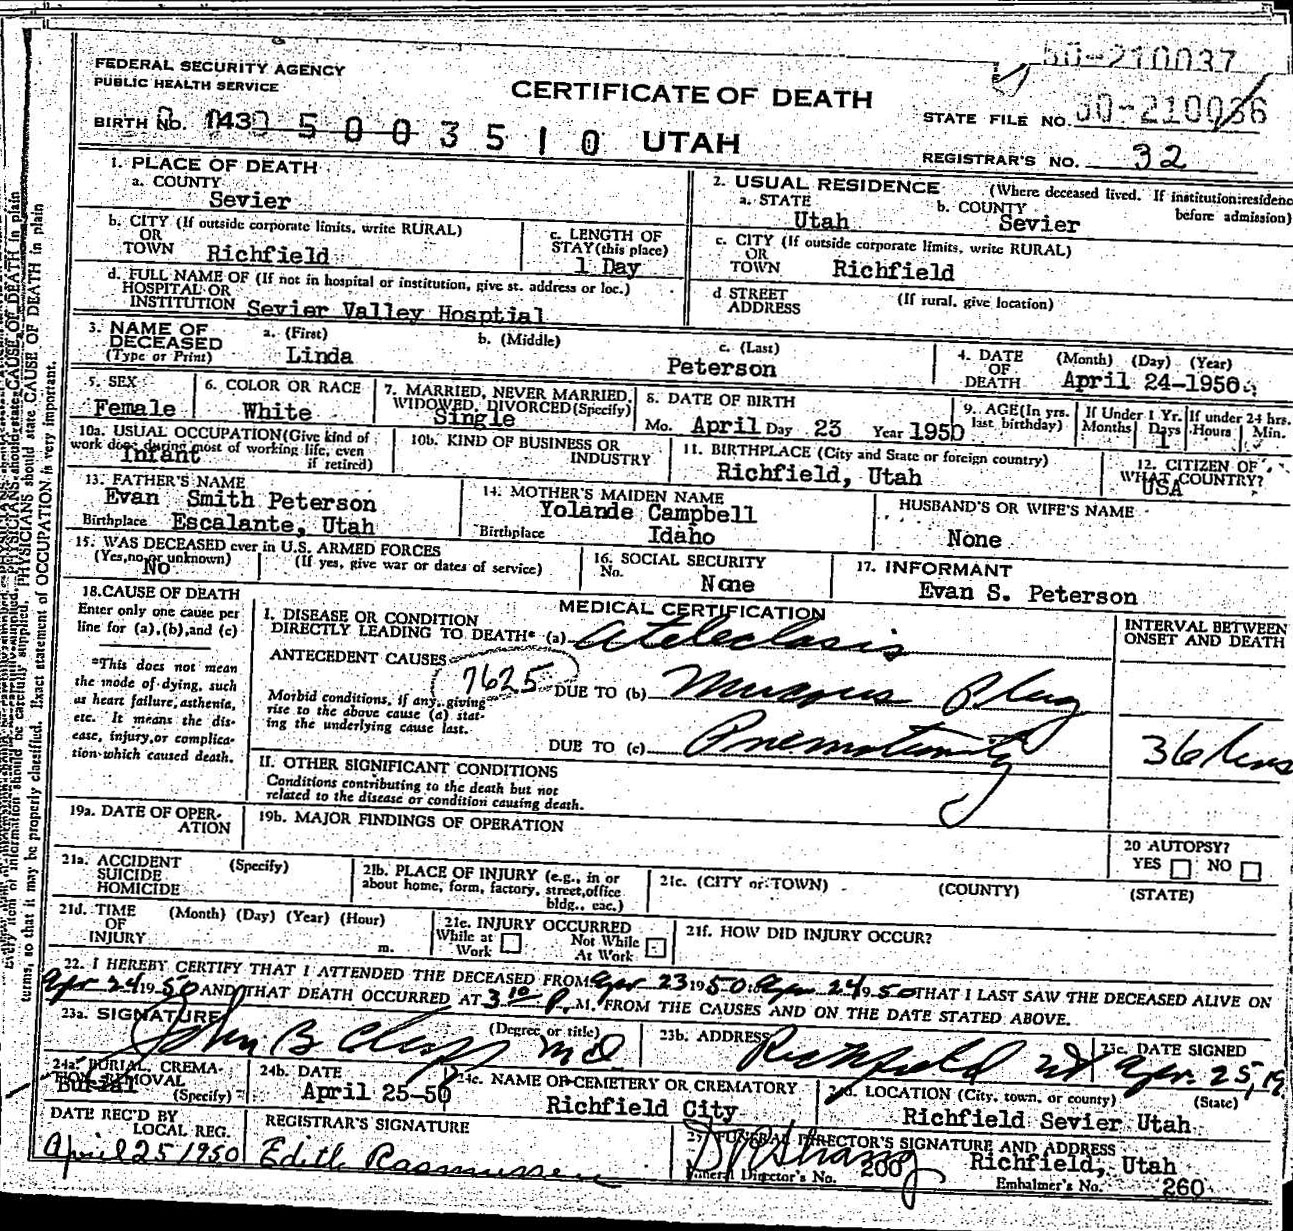 50-210037
FEDERAL SECURITY AGENCY
PUBLIC HEALTH SERVICE
CERTIFICATE OF DEATH
STATE FILE NO. 50-210036
BIRTH NO. 5 0 0 3 5 1 0 UTAH
REGISTRAR'S NO. 32
1. PLACE OF DEATH
a. COUNTY
Sevier
2. USUAL RESIDENCE (Where deceased lived. If institution:residence
a. STATE b. COUNTY before admission)
Utah Sevier
b. CITY (If outside corporate limits, write RURAL)
OR
TOWN Richfield
c. LENGTH OF
STAY (this place)
1 Day
c. CITY (If outside corporate limits, write RURAL)
OR
TOWN Richfield
d. FULL NAME OF (If not in hospital or institution, give st. address or loc.)
HOSPITAL OR
INSTITUTION Sevier Valley Hosptial
d STREET (If rural, give location)
ADDRESS
3. NAME OF a. (First) b. (Middle) c. (Last)
DECEASED
(Type or Print) Linda Peterson
4. DATE (Month) (Day) (Year)
OF
DEATH April 24-1950
5. SEX
Female
6. COLOR OR RACE
White
7. MARRIED, NEVER MARRIED,
WIDOWED, DIVORCED (Specify)
Single
8. DATE OF BIRTH
Mo. April Day 23 Year 1950
9. AGE (In yrs.
last birthday)
If Under 1 Yr.
Months Days
1
If under 24 hrs.
Hours Min.
10a. USUAL OCCUPATION (Give kind of
work does during most of working life, even
if retired)
Infant
10b. KIND OF BUSINESS OR
INDUSTRY
11. BIRTHPLACE (City and State or foreign country)
Richfield, Utah
12. CITIZEN OF
WHAT COUNTRY?
USA
13. FATHER'S NAME
Evan Smith Peterson
Birthplace Escalante, Utah
14. MOTHER'S MAIDEN NAME
Yolande Campbell
Birthplace Idaho
HUSBAND'S OR WIFE'S NAME
None
15. WAS DECEASED ever in U.S. ARMED FORCES
(Yes,no,or unknown) (If yes, give war or dates of service)
No
16. SOCIAL SECURITY
No. None
17. INFORMANT
Evan S. Peterson
18. CAUSE OF DEATH
Enter only one cause per
line for (a),(b),and (c)
*This does not mean
the mode of dying, such
as heart failure, asthenia,
etc. It means the dis-
ease, injury, or complica-
tion which caused death.
MEDICAL CERTIFICATION
I. DISEASE OR CONDITION
DIRECTLY LEADING TO DEATH* (a) Atelectasis
ANTECEDENT CAUSES 7625
Morbid conditions, if any, giving
rise to the above cause (a) stat-
ing the underlying cause last.
DUE TO (b) Mucous Plug
DUE TO (c) Prematurity
INTERVAL BETWEEN
ONSET AND DEATH
36 hrs
II. OTHER SIGNIFICANT CONDITIONS
Conditions contributing to the death but not
related to the disease or condition causing death.
19a. DATE OF OPER-
ATION
19b. MAJOR FINDINGS OF OPERATION
20 AUTOPSY?
YES NO
21a. ACCIDENT (Specify)
SUICIDE
HOMICIDE
21b. PLACE OF INJURY (e.g., in or
about home, form, factory, street, office
bldg., eac.)
21c. (CITY or TOWN) (COUNTY) (STATE)
21d. TIME (Month) (Day) (Year) (Hour)
OF
INJURY m.
21e. INJURY OCCURRED
While at Work Not While At Work
21f. HOW DID INJURY OCCUR?
22. I HEREBY CERTIFY THAT I ATTENDED THE DECEASED FROM Apr 23 1950 Apr 24 1950 THAT I LAST SAW THE DECEASED ALIVE ON
Apr 24 1950 AND THAT DEATH OCCURRED AT 3 10 P. M. FROM THE CAUSES AND ON THE DATE STATED ABOVE.
23a. SIGNATURE (Degree or title)
John B MD
23b. ADDRESS
Richfield Ut
23c. DATE SIGNED
Apr. 25, 19
24a. BURIAL, CREMA-
TION, REMOVAL
(Specify)
Burial
24b. DATE
April 25-50
24c. NAME OF CEMETERY OR CREMATORY
Richfield City
24d. LOCATION (City, town, or county) (State)
Richfield Sevier Utah
DATE REC'D BY
LOCAL REG.
April 25 1950
REGISTRAR'S SIGNATURE
Edith Rasmussen
25. FUNERAL DIRECTOR'S SIGNATURE AND ADDRESS
Richfield, Utah
Funeral Director's No. 200
Embalmer's No. 260